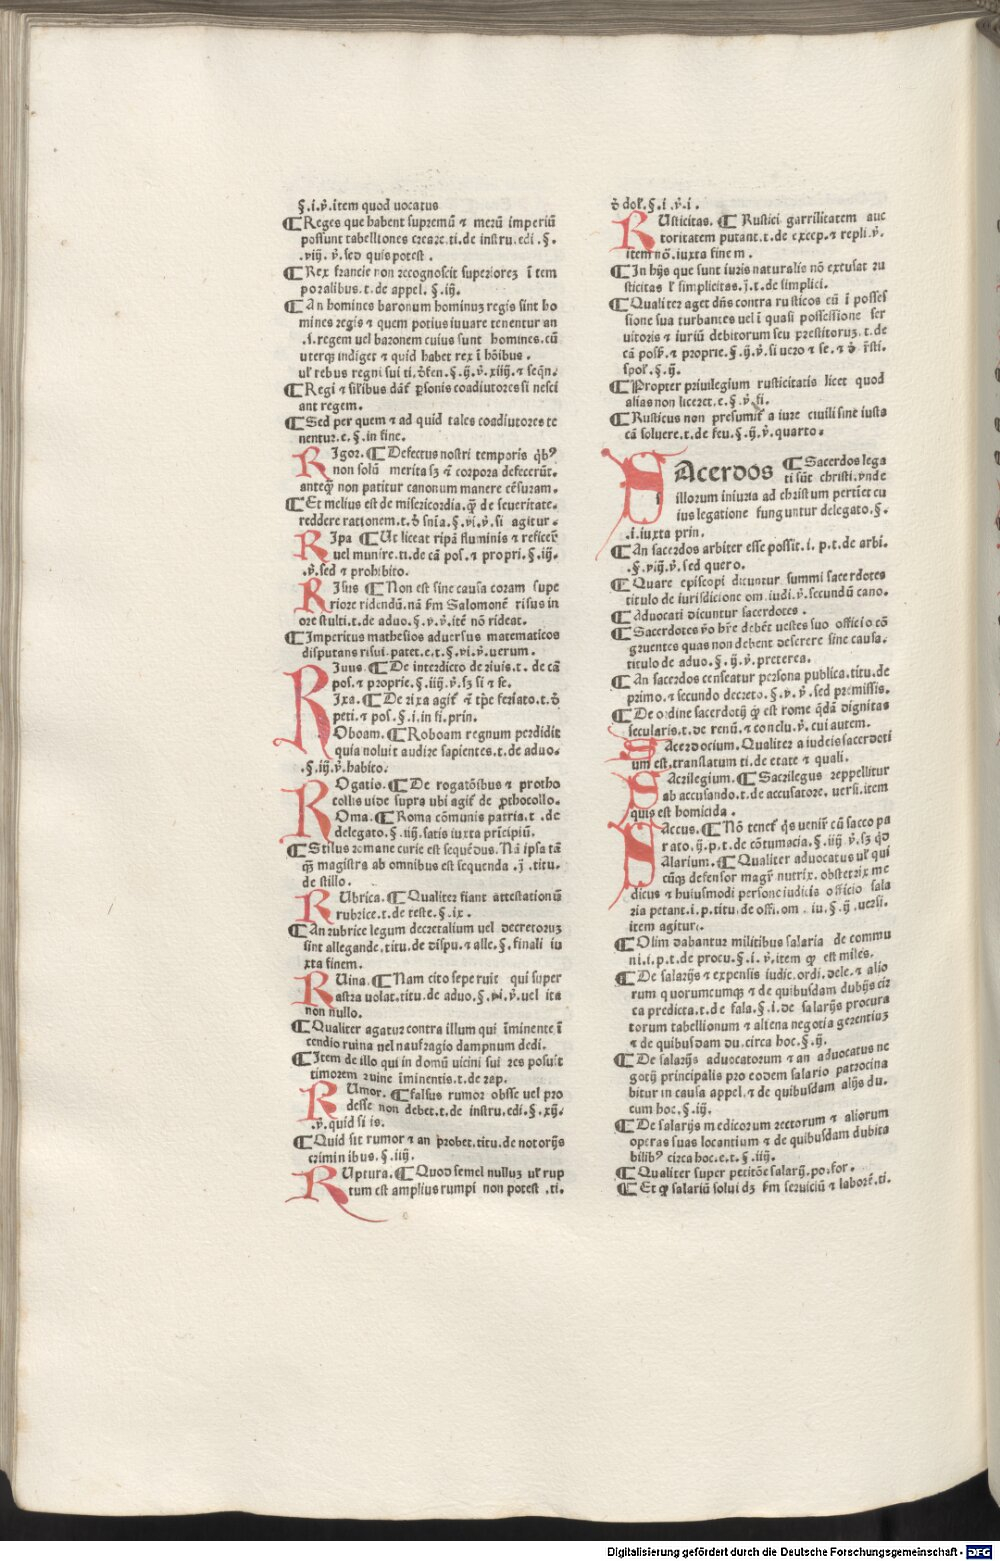 §.i.v̉.item quod uocatus
¶ Reges que habent supremū ⁊ merū imperiū
possunt tabelliones creare.ti.de instru.edi.§.
.viij.v̉.sed quis potest.
¶ Rex francie non recognoscit superiorez ī tem
poralibus.t.de appel.§.iij.
¶ An homines baronum hominuz regis sint ho
mines regis ⁊ quem potius iuuare tenentur an
.i.regem uel baronem cuius sunt homines.cū
uterq; indiget ⁊ quid habet rex ī hōibus.
ul' rebus regni sui ti.d̉fen.§.ij.v̉.xiiij.⁊ seqn̄.
¶ Regi ⁊ sil'ibus dāt' ꝑsonis coadiutores si nesci
ant regem.
¶ Sed per quem ⁊ ad quid tales coadiutores te
nentur.e.§.in fine.
RIgor. ¶ Defectus nostri temporis q̇bꝰ
non solū merita sꝫ ⁊ corpora defecerūt.
anteq̄ non patitur canonum manere cēsuram.
¶ Et melius est de misericordia.q̄ de seueritate.
reddere rationem.t.d̉ snīa.§.vi.v̉.si agitur.
RIpa ¶ Ut liceat ripā fluminis ⁊ reficer̄
uel munire.ti.de cā pos.⁊ propri.§.iij.
.v̉.sed ⁊ prohibito.
RIsus ¶ Non est sine causa coram supe
riore ridendū.nā fm Salomonē risus in
ore stulti.t.de aduo.§.v.v̉.itē nō rideat.
¶ Imperitus mathesios aduersus matematicos
disputans risui.patet.e.t.§.vi.v̉.uerum.
RIuus. ¶ De interdicto de riuis.t.de cā
pos.⁊ proprie.§.iiij.v̉.sꝫ si ⁊ se.
Ixa. ¶ De rixa agit' ī tp̄e feriato.t.d̉
peti.⁊ pos.§.i.in fi.prin.
Oboam. ¶ Roboam regnum perdidit
quia noluit audire sapientes.t.de aduo.
.§.iij.v̉.habito.
ROgatio. ¶ De rogatōibus ⁊ protho
collis uide supra ubi agit' de ꝓthocollo.
Oma. ¶ Roma cōmunis patria.t.de
delegato.§.iij.satis iuxta prīcipiū.
¶ Stilus romane curie est sequēdus. Nā ipsa tā
q̄ magistra ab omnibus est sequenda.j.titu.
de stillo.
RUbrica. ¶ Qualiter fiant attestationū
rubrice.t.de teste.§.ix.
¶ An rubrice legum decretalium uel decretoruz
sint allegande.titu.de dispu.⁊ alle.§.finali iu
xta finem.
RUina. ¶ Nam cito sepe ruit qui super
astra uolat.titu.de aduo.§.vi.v̉.uel ita
non nullo.
¶ Qualiter agatur contra illum qui īminente ī
cendio ruina uel naufragio dampnum dedi.
¶ Item de illo qui in domū uicini sui res posuit
timorem ruine īminentis.t.de rap.
RUmor. ¶ falsus rumor obsse uel pro
desse non debet.t.de instru.edi.§.xij.
.v̉.quid si is.
¶ Quid sit rumor ⁊ an probet.titu.de notorijs
criminibus.§.iij.
RUptura. ¶ Quod semel nulluz ul' rup
tum est amplius rumpi non potest.ti.
d̉ dol'.§.i.v̉.i.
RUsticitas. ¶ Rustici garrilitatem auc
toritatem putant.t.de excep.⁊ repli.v̉.
item nō.iuxta finem.
¶ In hijs que sunt iuris naturalis nō excusat ru
sticitas l' simplicitas.j.t.de simplici.
¶ Qualiter aget dn̄s contra rusticos eū ī posses
sione sua turbantes uel ī quasi possessione ser
uitoris ⁊ iuriū debitorum seu prestitoruz.t.de
cā poss'.⁊ proprie.§.ij.v̉.si uero ⁊ se.⁊ d̉ r̄sti.
spol'.§.ij.
¶ Propter priuilegium rusticitatis licet quod
alias non liceret.e.§.v̉.fi.
¶ Rusticus non presumit' a iure ciuili sine iusta
cā soluere.t.de feu.§.ij.v̉.quarto.
SAcerdos ¶ Sacerdos lega
ti sūt christi.vnde
illorum iniuria ad christum pertīet cu
ius legatione funguntur delegato.§.
.i.iuxta prin.
¶ An sacerdos arbiter esse possit.i.p.t.de arbi.
.§.viij.v̉.sed quero.
¶ Quare episcopi dicuntur summi sacerdotes
titulo de iurisdicione om.iudi.v̉.secundū cano.
¶ Aduocati dicuntur sacerdotes.
¶ Sacerdotes v̉o hr̄e debēt uestes suo officio cō
gruentes quas non debent deserere sine causa.
titulo de aduo.§.ij.v̉.preterea.
¶ An sacerdos censeatur persona publica.titu.de
primo.⁊ secundo decreto.§.v.v̉.sed premissis.
¶ De ordine sacerdotij q̄ est rome q̄dā dignitas
secularis.t.de renū.⁊ conclu.v̉.cui autem.
SAcerdocium. Qualiter a iudeis sacerdoti
um est.translatum ti.de etate ⁊ quali.
SAcrilegium. ¶ Sacrilegus reppellitur
ab accusando.t.de accusatore.uersi.item
quis est homicida.
SAccus. ¶ Nō tenet' q̇s uenir̄ cū sacco pa
rato.ij.p.t.de cōtumacia.§.iiij.v̉.sꝫ q̇d
Alarium. ¶ Qualiter aduocatus ul' qui
cūq; defensor magr̄ nutrix.obstetrix me
dicus ⁊ huiusmodi persone iudicis officio sala
ria petant.i.p.titu.de offi.om.iu.§.ij.uersi.
item agitur.
¶ Olim dabantur militibus salaria de commu
ni.i.p.t.de procu.§.i.v̉.item q̄ est miles.
¶ De salarijs ⁊ expensis iudic.ordi.dele.⁊ alio
rum quorumcumq; ⁊ de quibusdam dubijs cir
ca predicta.t.de sala.§.i.de salarijs procura
torum tabellionum ⁊ aliena negotia gerentiuz
⁊ de quibusdam du.circa hoc.§.ij.
¶ De salarijs aduocatorum ⁊ an aduocatus ne
gotij principalis pro eodem salario patrocina
bitur in causa appel.⁊ de quibusdam alijs du.
cum hoc.§.iij.
¶ De salarijs medicorum rectorum ⁊ aliorum
operas suas locantium ⁊ de quibusdam dubita
bilibꝰ circa hoc.e.t.§.iiij.
¶ Qualiter super petitōe salarij.po.for.
¶ Et q̄ salariū solui dꝫ fm seruiciū ⁊ laborē.ti.
Digitalisierung gefördert durch die Deutsche Forschungsgemeinschaft - DFG